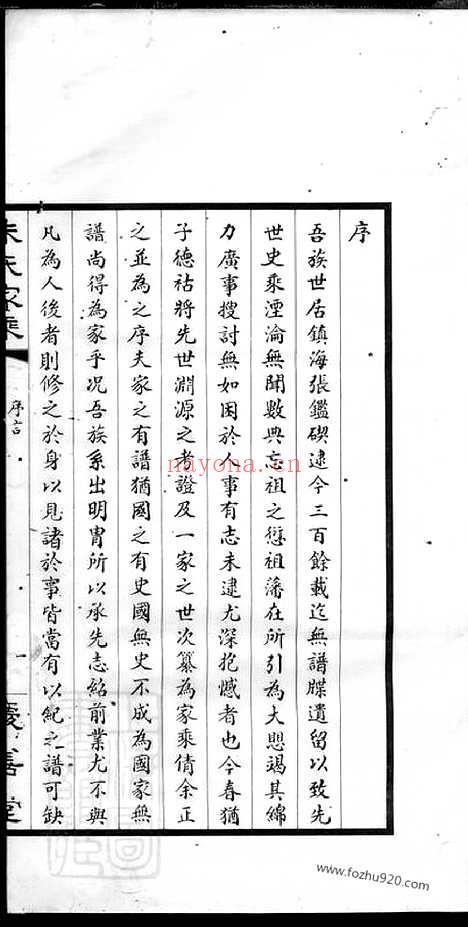 序
吾族世居鎮海張鑑碶逮今三百餘載迄無譜牒遺留以致先
世史乘湮淪無聞數典忘祖之愆祖藩在所引為大愳竭其綿
力廣事搜討無如困於人事有志未逮尤深抱憾者也今春猶
子德祜將先世淵源之考證及一家之世次纂為家乘倩余正
之並為之序夫家之有譜猶國之有史國無史不成為國家無
譜尚得為家乎況吾族系出明胄所以承先志紹前業尤不與
凡為人後者則修之於身以見諸於事皆當有以紀之譜可缺
朱氏家乘
序言
一
慶善堂
nayona.cn
www.fozhu920.com